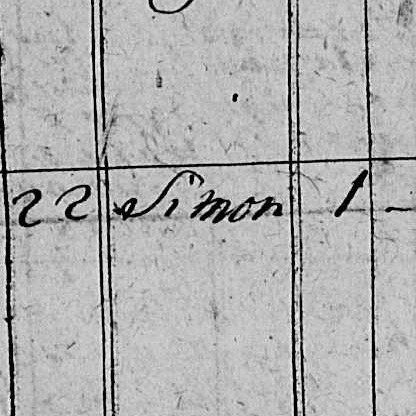 22 Simon 1 -